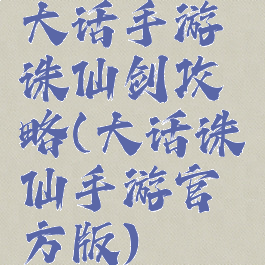 大话手游
诛仙剑攻
略(大话诛
仙手游官
方版)